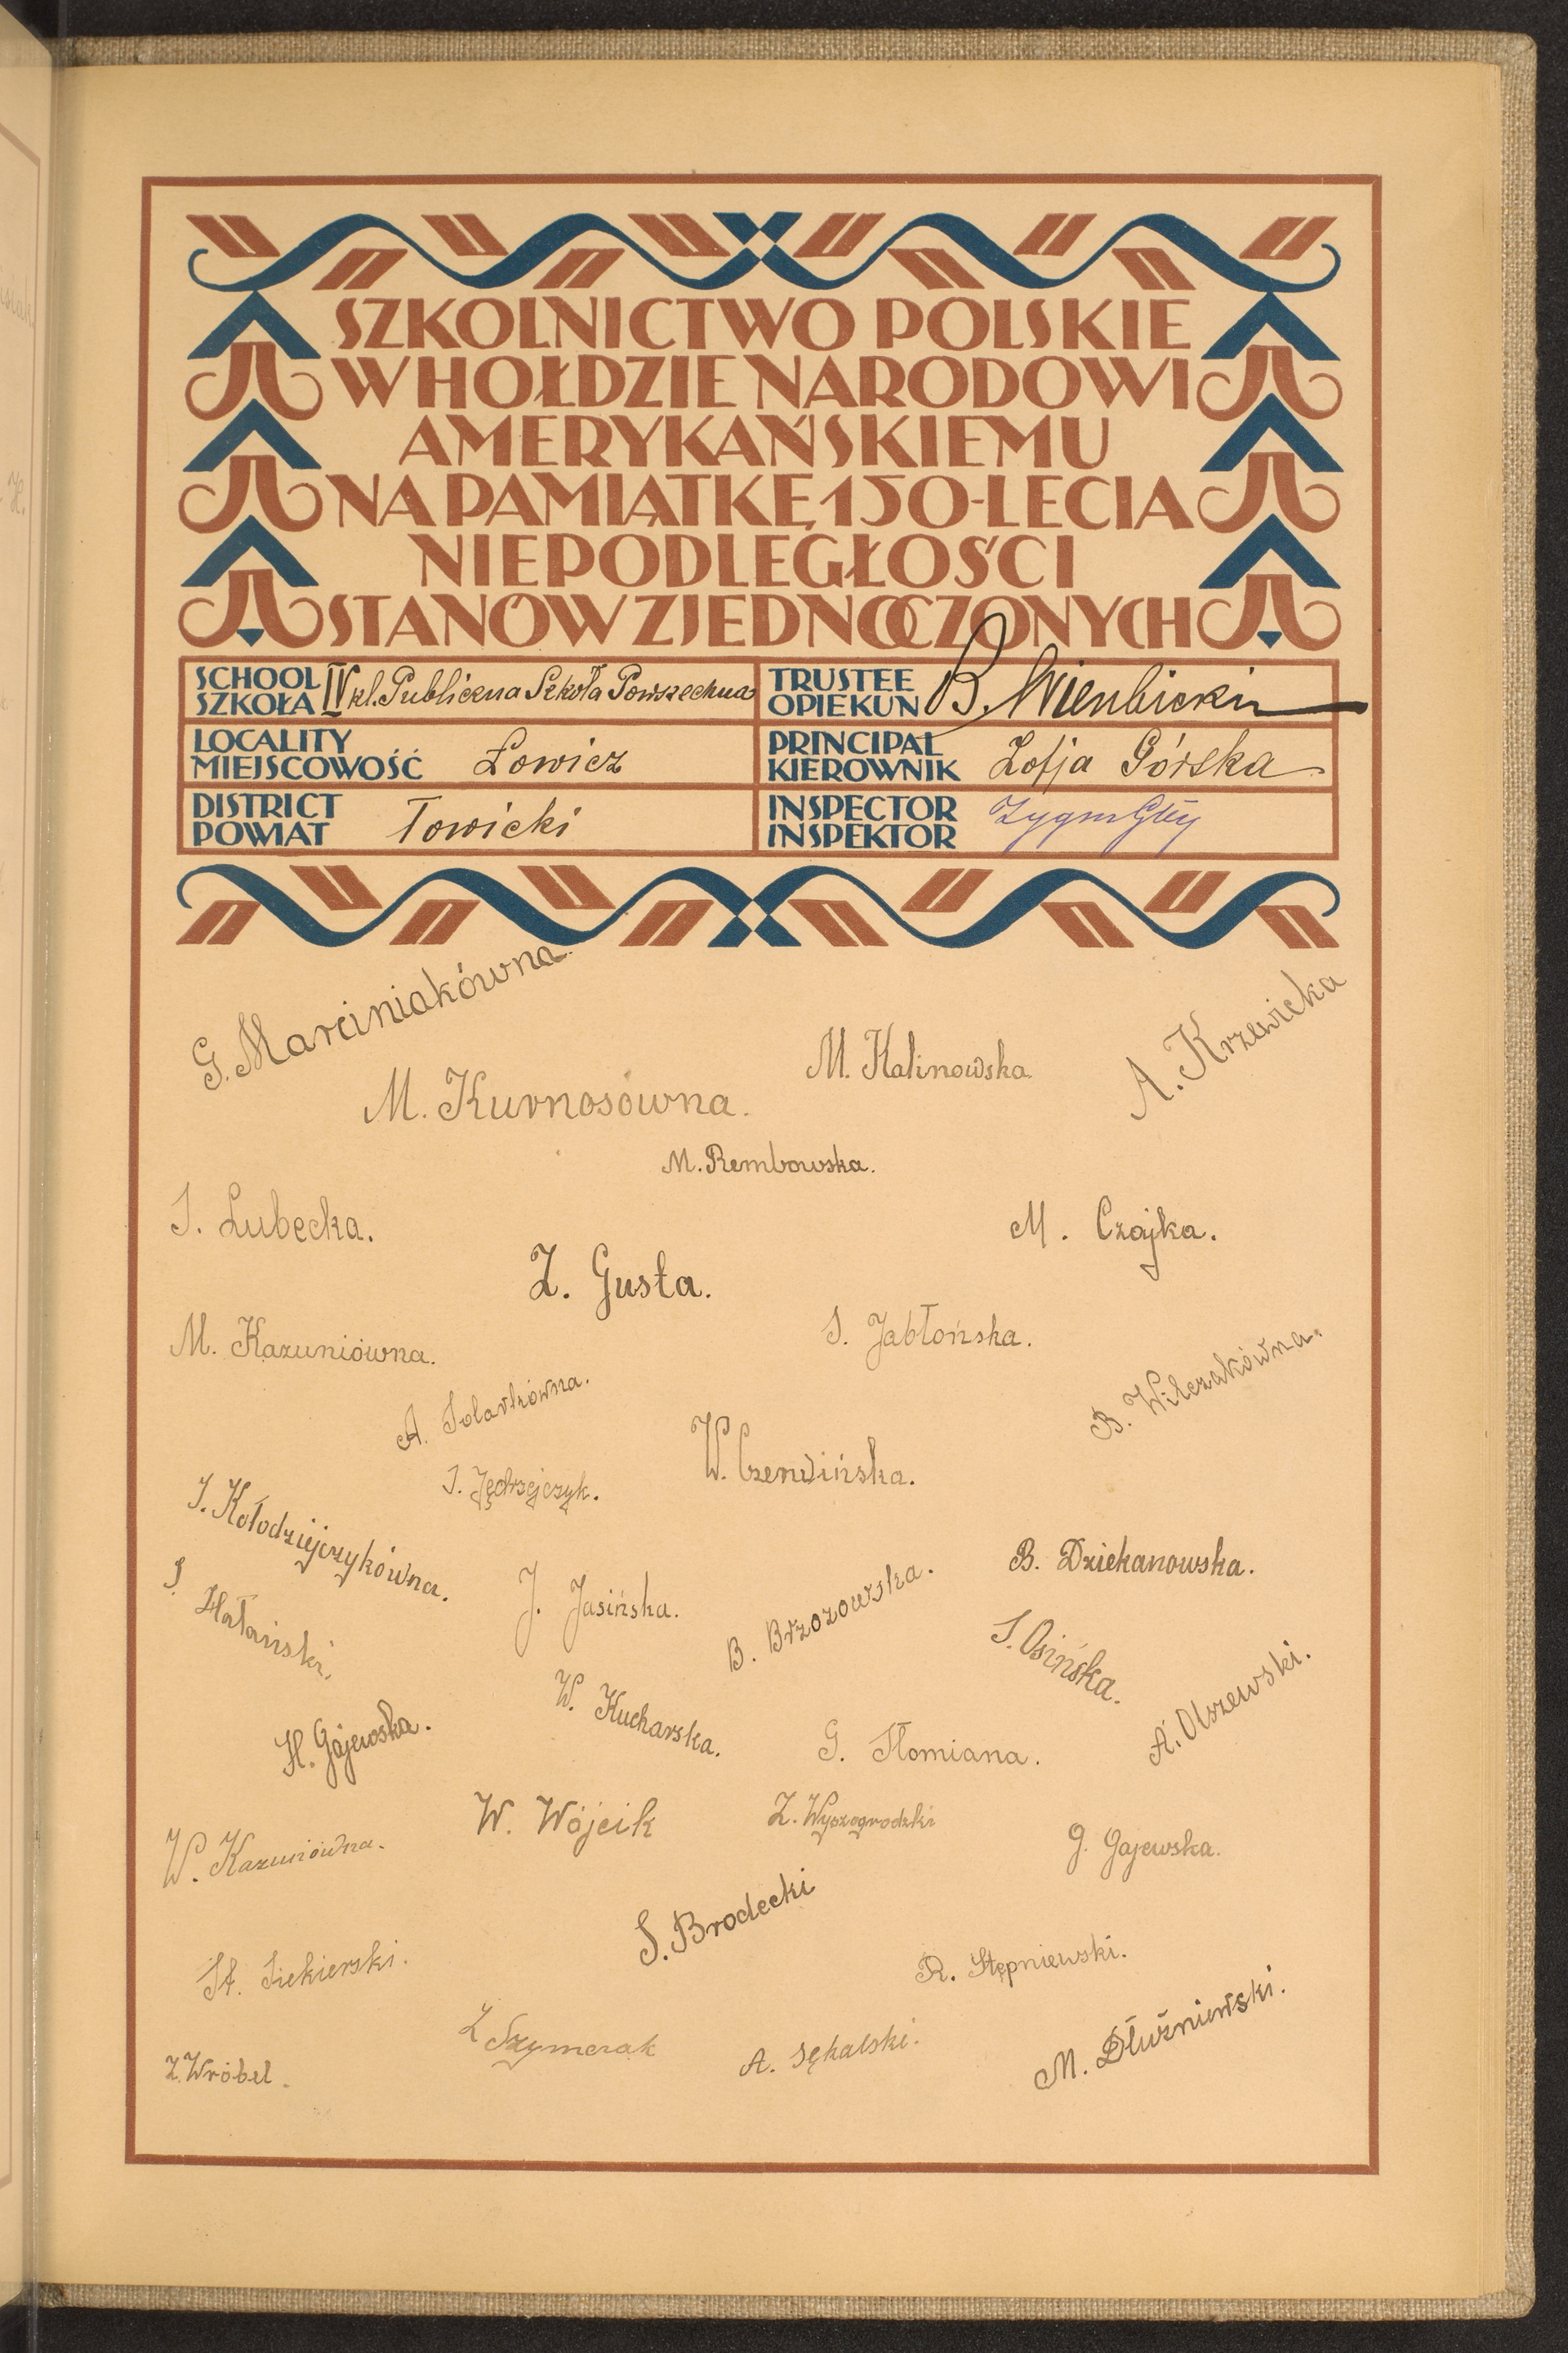 SZKOLNICTWO POLSKIE
W HOŁDZIE NARODOWI
AMERYKAŃSKIEMU
NA PAMIĄTKĘ 150-LECIA
NIEPODLEGŁOŚCI
STANÓW ZJEDNOCZONYCH
SCHOOL
SZKOŁA IV kl. Publiczna Szkoła Powszechna
TRUSTEE
OPIEKUN B.
LOCALITY
MIEJSCOWOŚĆ Łowicz
PRINCIPAL
KIEROWNIK Zofja Górska
DISTRICT
POWIAT Łowicki
INSPECTOR
INSPEKTOR
G. Marciniakówna
M. Kalinowska
A. Krzewicka
M. Kurnosówna.
M. Rembowska.
J. Lubecka.
M. Czajka.
Z. Gusta.
M. Kazuniówna.
S. Jabłońska.
B. Wilczakówna.
A.
W. Czerwińska.
J. Jędrzejczyk.
J. Kołodziejczykówna.
B. Dziekanowska.
J. Jasińska.
B. Brzozowska.
S. Osińska.
W. Kucharska.
A. Olszewski.
H. Gajewska.
G. Tłomiana.
W. Wójcik
Z. Wyszogrodzki
G. Gajewska.
W. Kazuniówna.
S. Brodecki
St. Siekierski.
R. Stępniewski.
Z Szymczak
A. Sękalski.
M. Dłużniewski.
Z. Wróbel.